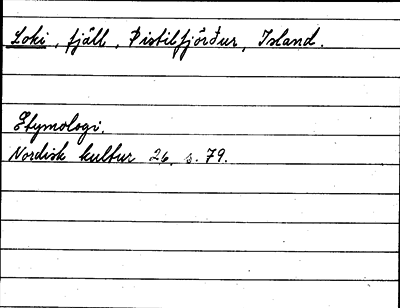 Loki, fjäll, Þistilfjörður, Island.
Etymologi.
Nordisk kultur 26, s. 79.